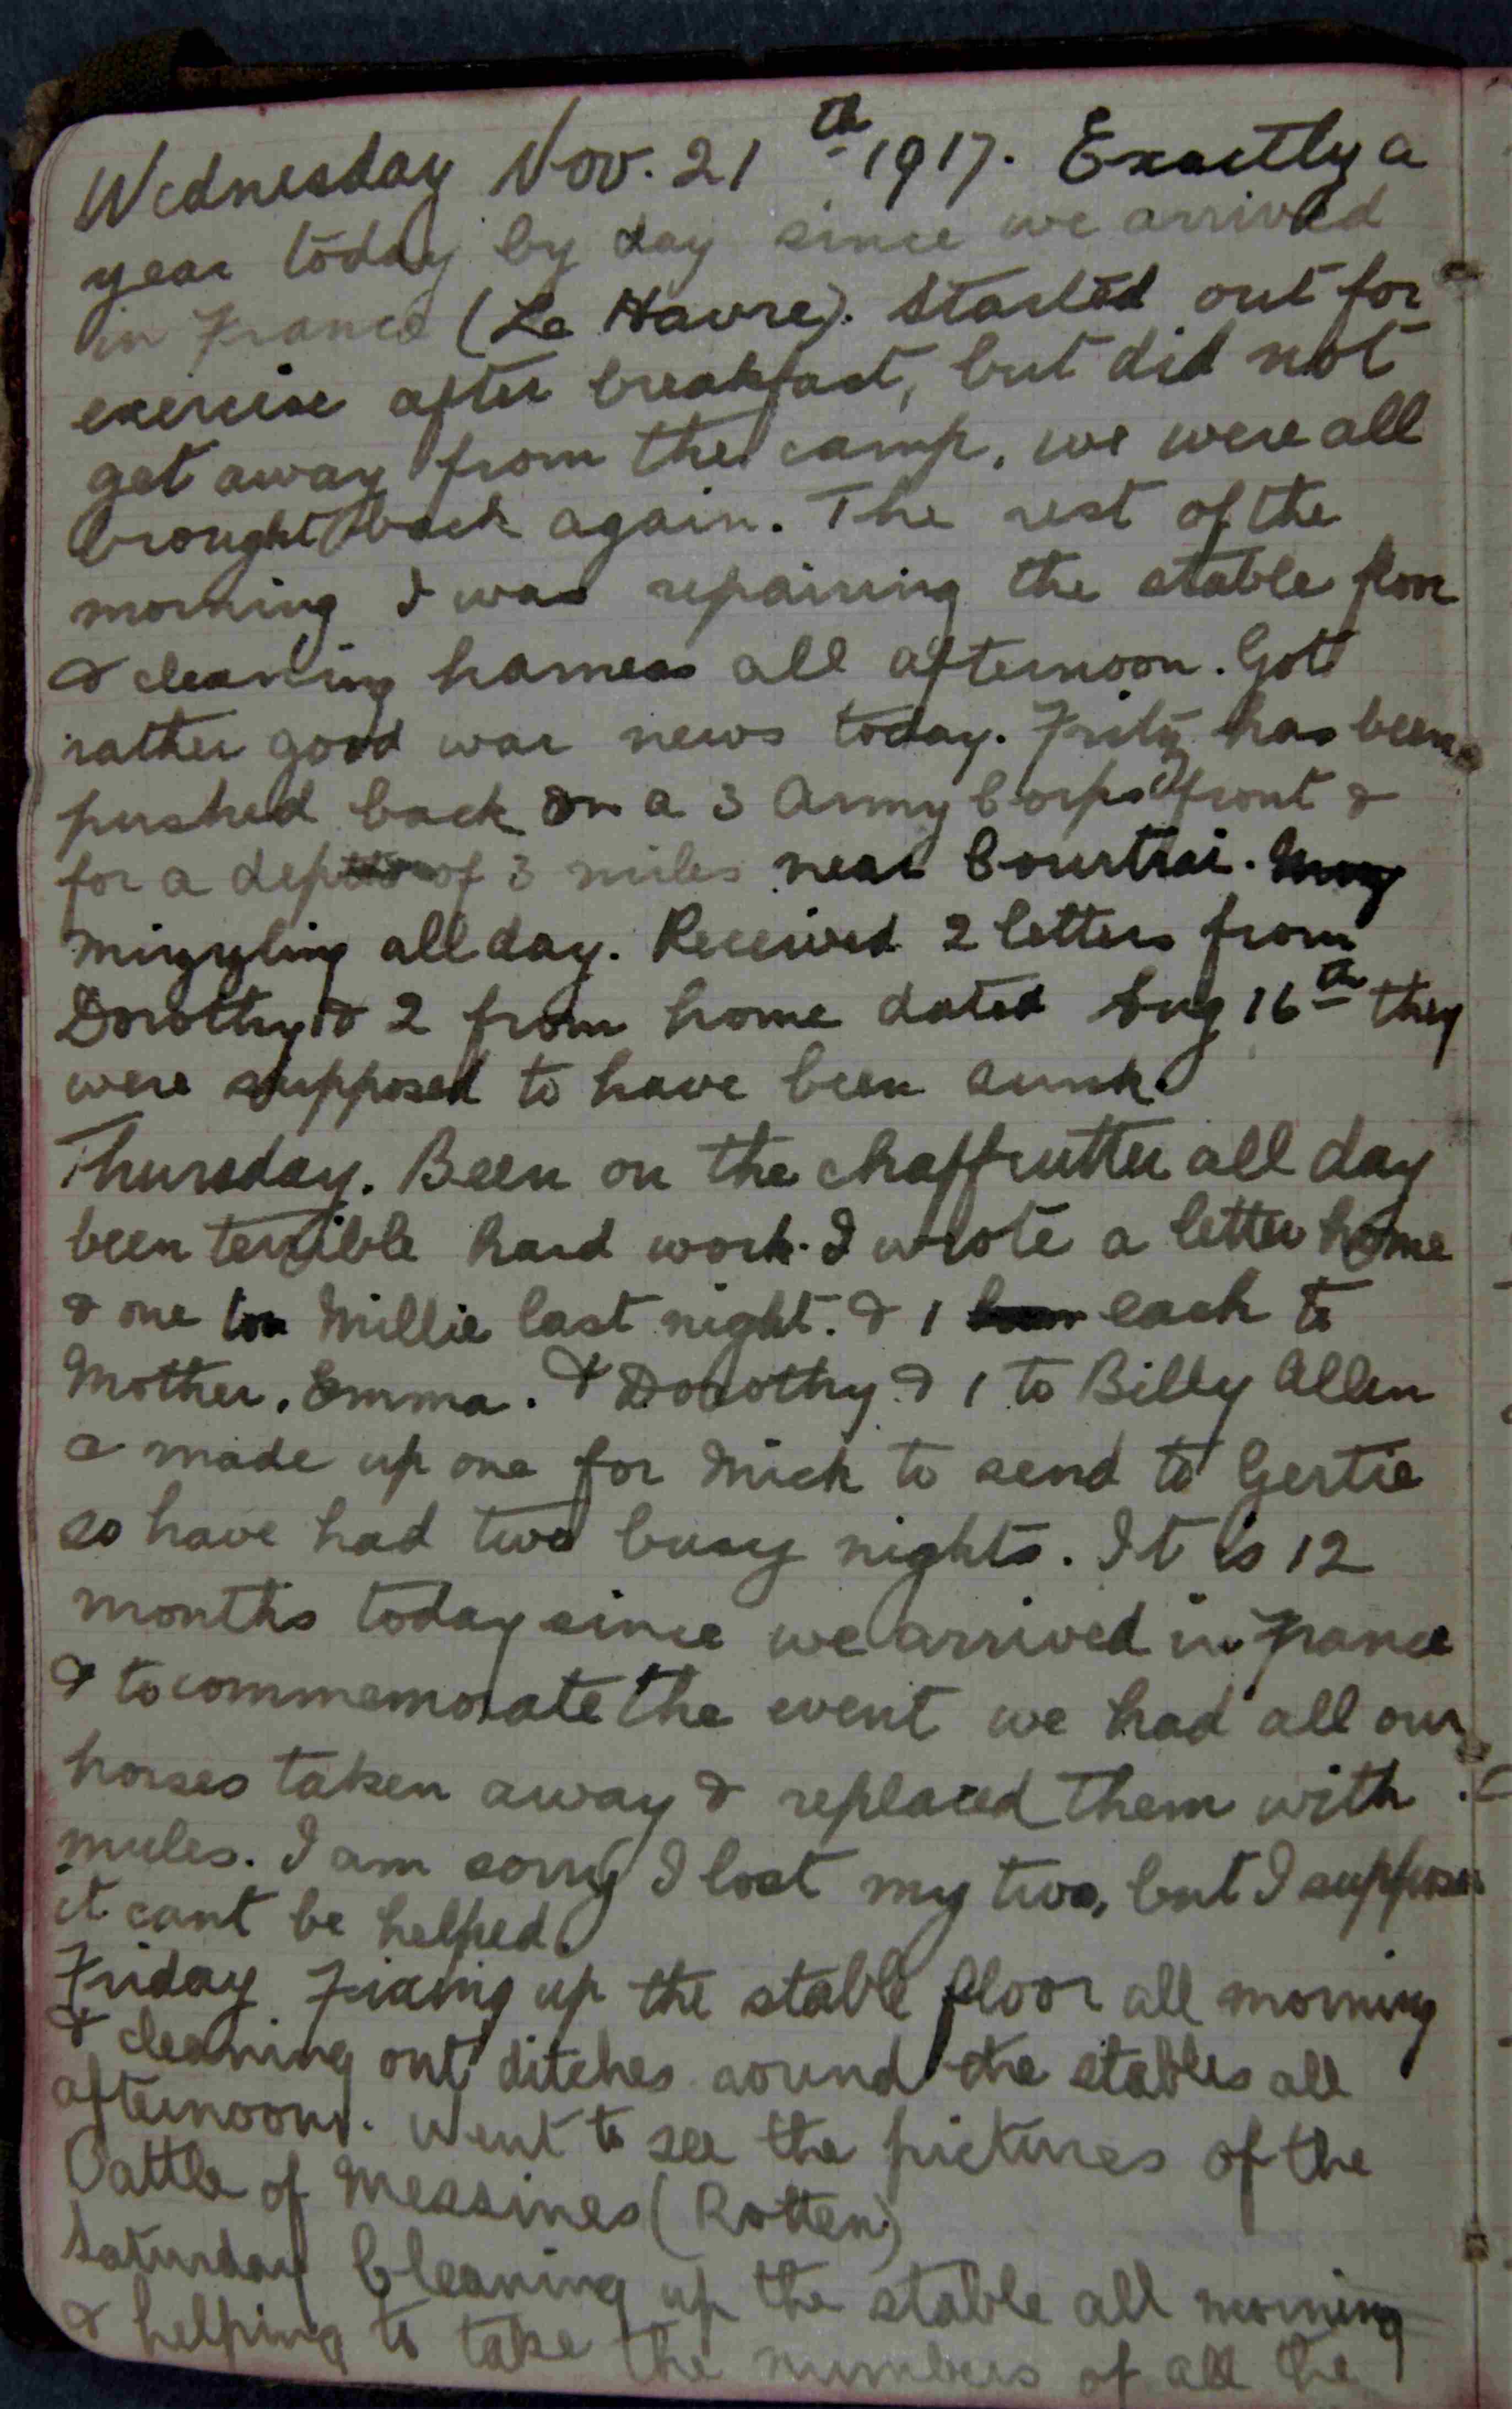 Wednesday Nov. 21th 1917. Exactly a
year today by day since we arrived
in France (Le Havre). Started out for
exercise after breakfast, but did not
get away from the camp, we were all
brought back again. The rest of the
morning I was repairing the stable floor
& cleaning harness all afternoon. Got
rather good war news today. Fritz has been
pushed back on a 3 Army Corps front &
for a depth of 3 miles near Courtrai.
mizzling all day. Received 2 letters from
Dorothy & 2 from home dated Aug 16th they
were supposed to have been sunk.
Thursday. Been on the chaffcutter all day
been terrible hard work. I wrote a letter home
& one to Millie last night. & 1 each to
Mother, Emma. & Dorothy & 1 to Billy Allen
& made up one for Mick to send to Gertie
so have had two busy nights. It is 12
months today since we arrived in France
& to commemorate the event we had all our
horses taken away & replaced them with
mules. I am sorry I lost my two, but I suppose
it cant be helped.
Friday Fixing up the stable floor all morning
& cleaning out ditches around the stables all
afternoon. Went to see the pictures of the
Battle of Messines (Rotten)
Saturday Cleaning up the stable all morning
& helping to take the numbers of all the